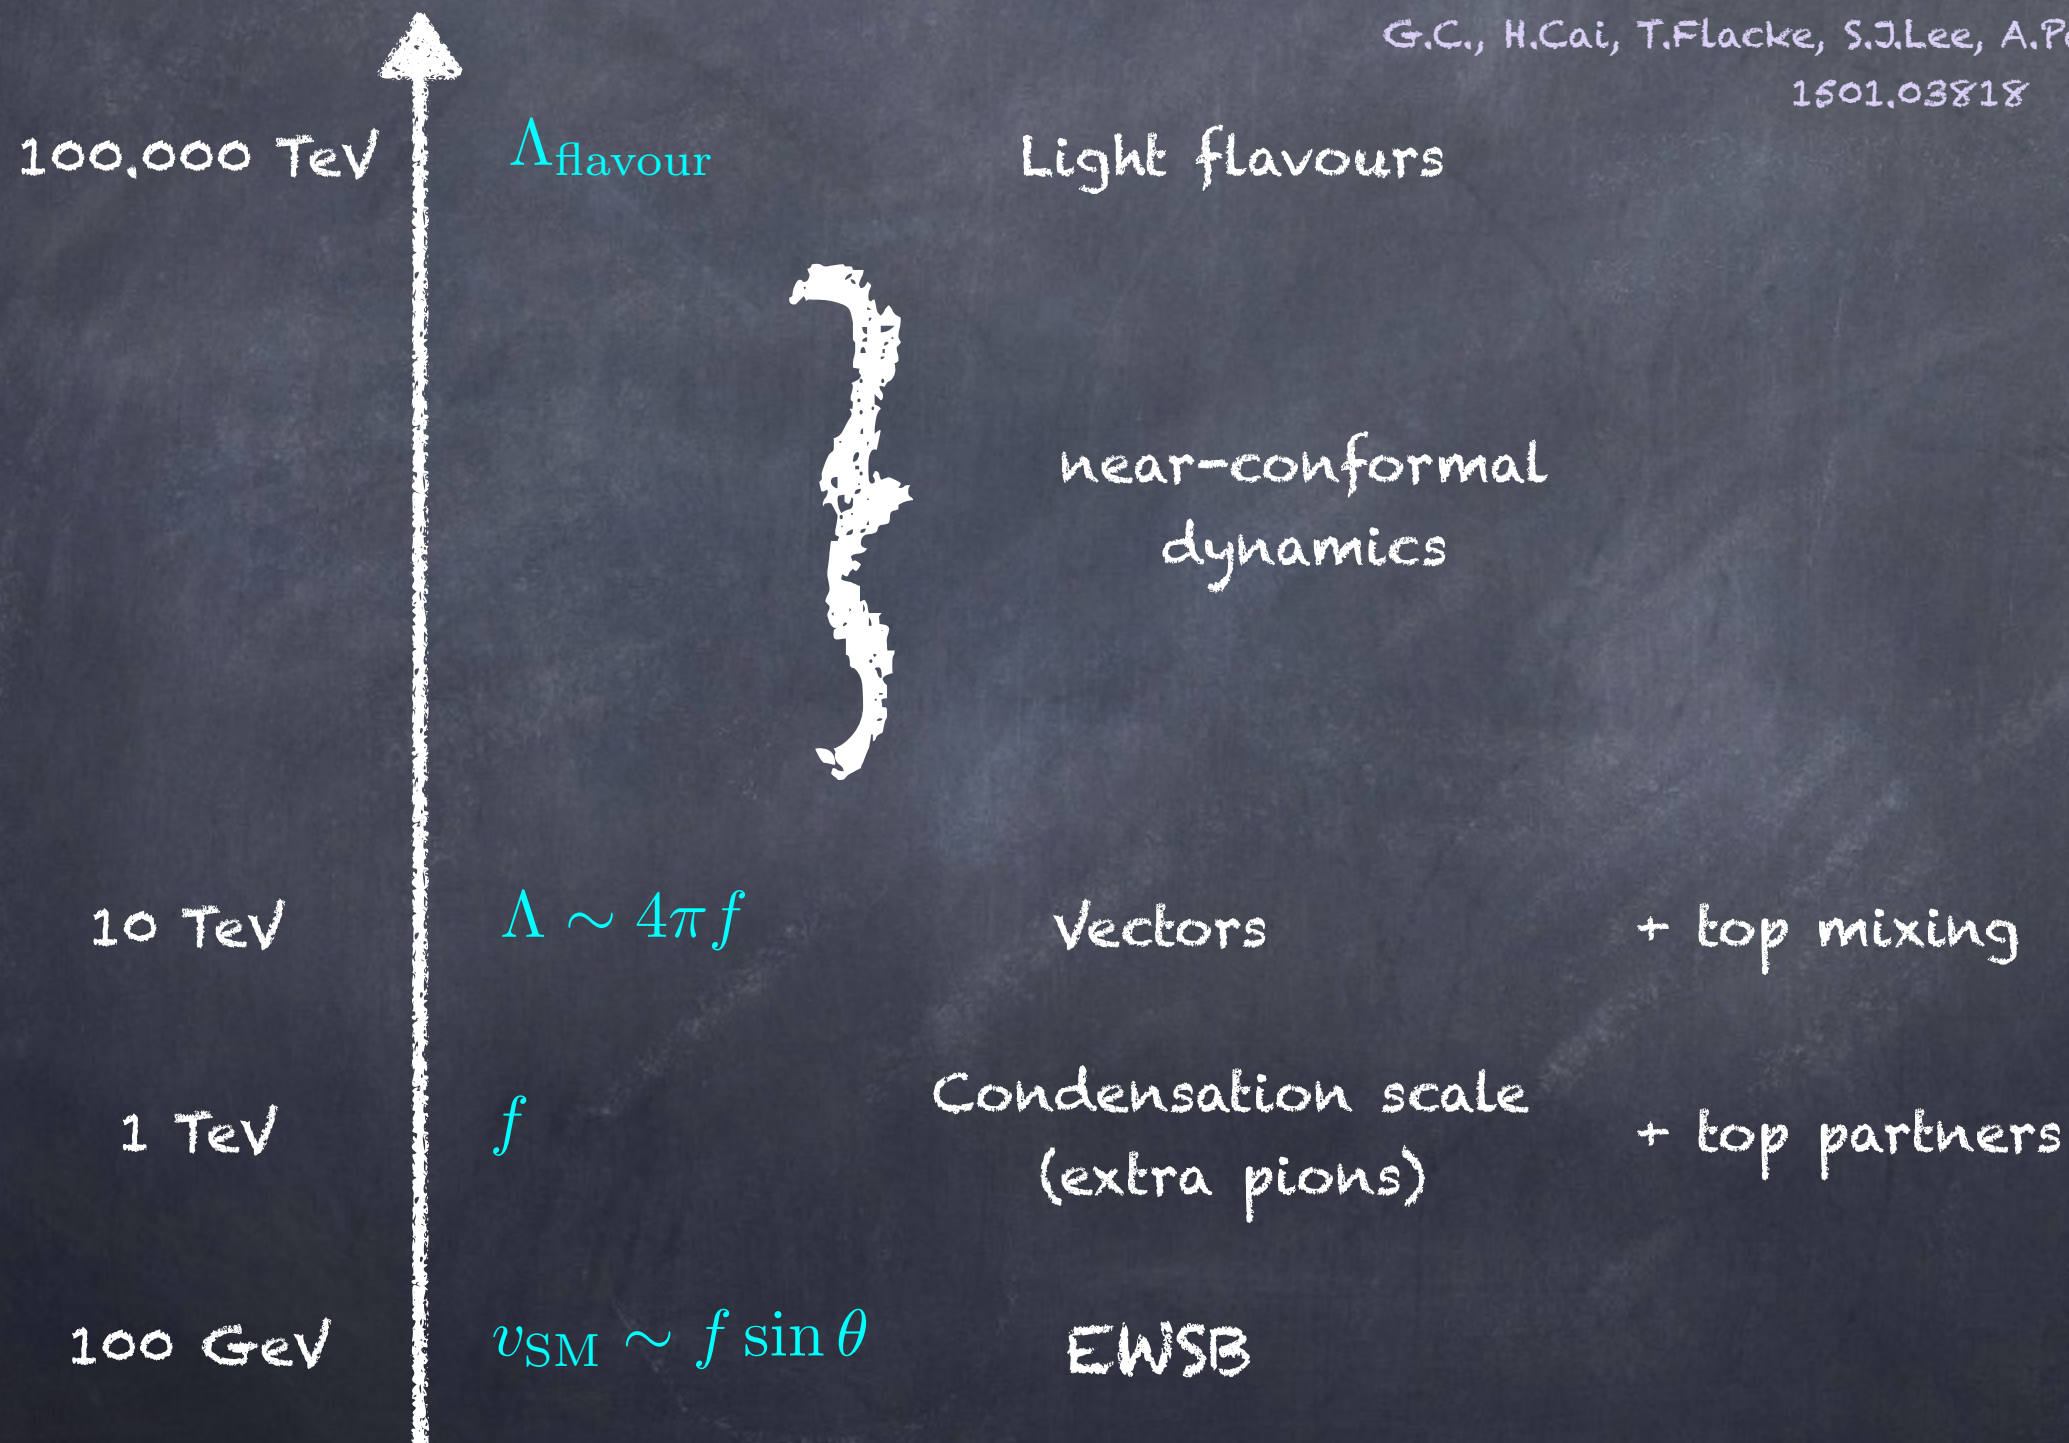 G.C., H.Cai, T.Flacke, S.J.Lee,
1501.03818
100.000 TeV Λ_flavour Light flavours
near-conformal
dynamics
10 TeV Λ ∼ 4πf Vectors + top mixing
1 TeV f Condensation scale + top partners
(extra pions)
100 GeV v_SM ∼ f sin θ EWSB